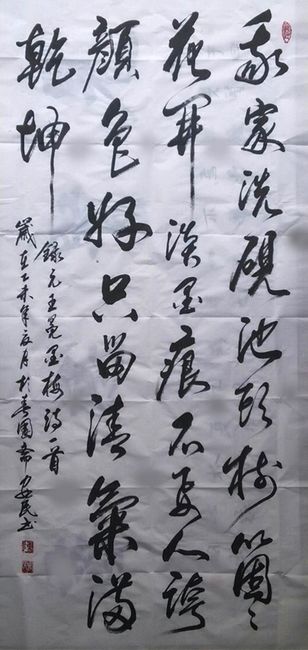 我家洗硯池頭樹箇々
花開淡墨痕不要人誇
顏色好只留清氣滿
乾坤
錄元王冕墨梅詩一首
歲在乙未年月於園齋安民书